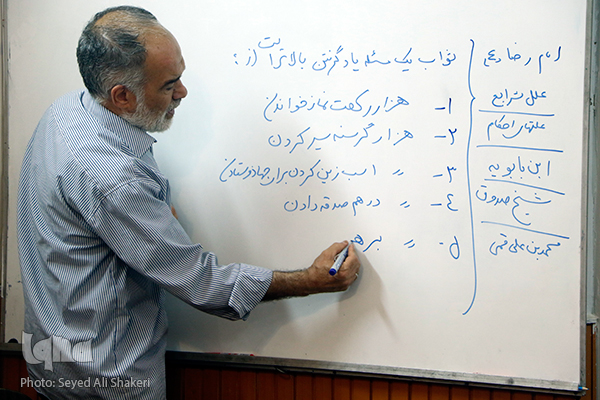 امام رضا (ع)
علل شرایع
علتهای احکام
ابن بابویه
شیخ صدوق
محمد بن علی قمی
ثواب یک مسئله یاد گرفتن بالاتر است از:
۱- هزار رکعت نماز خواندن
۲- هزار گرسنه سیر کردن
۳- " اسب زین کردن برای جهاد
۴- " درهم صدقه دادن
۵- " برهنه
iqna
Photo: Seyed Ali Shakeri